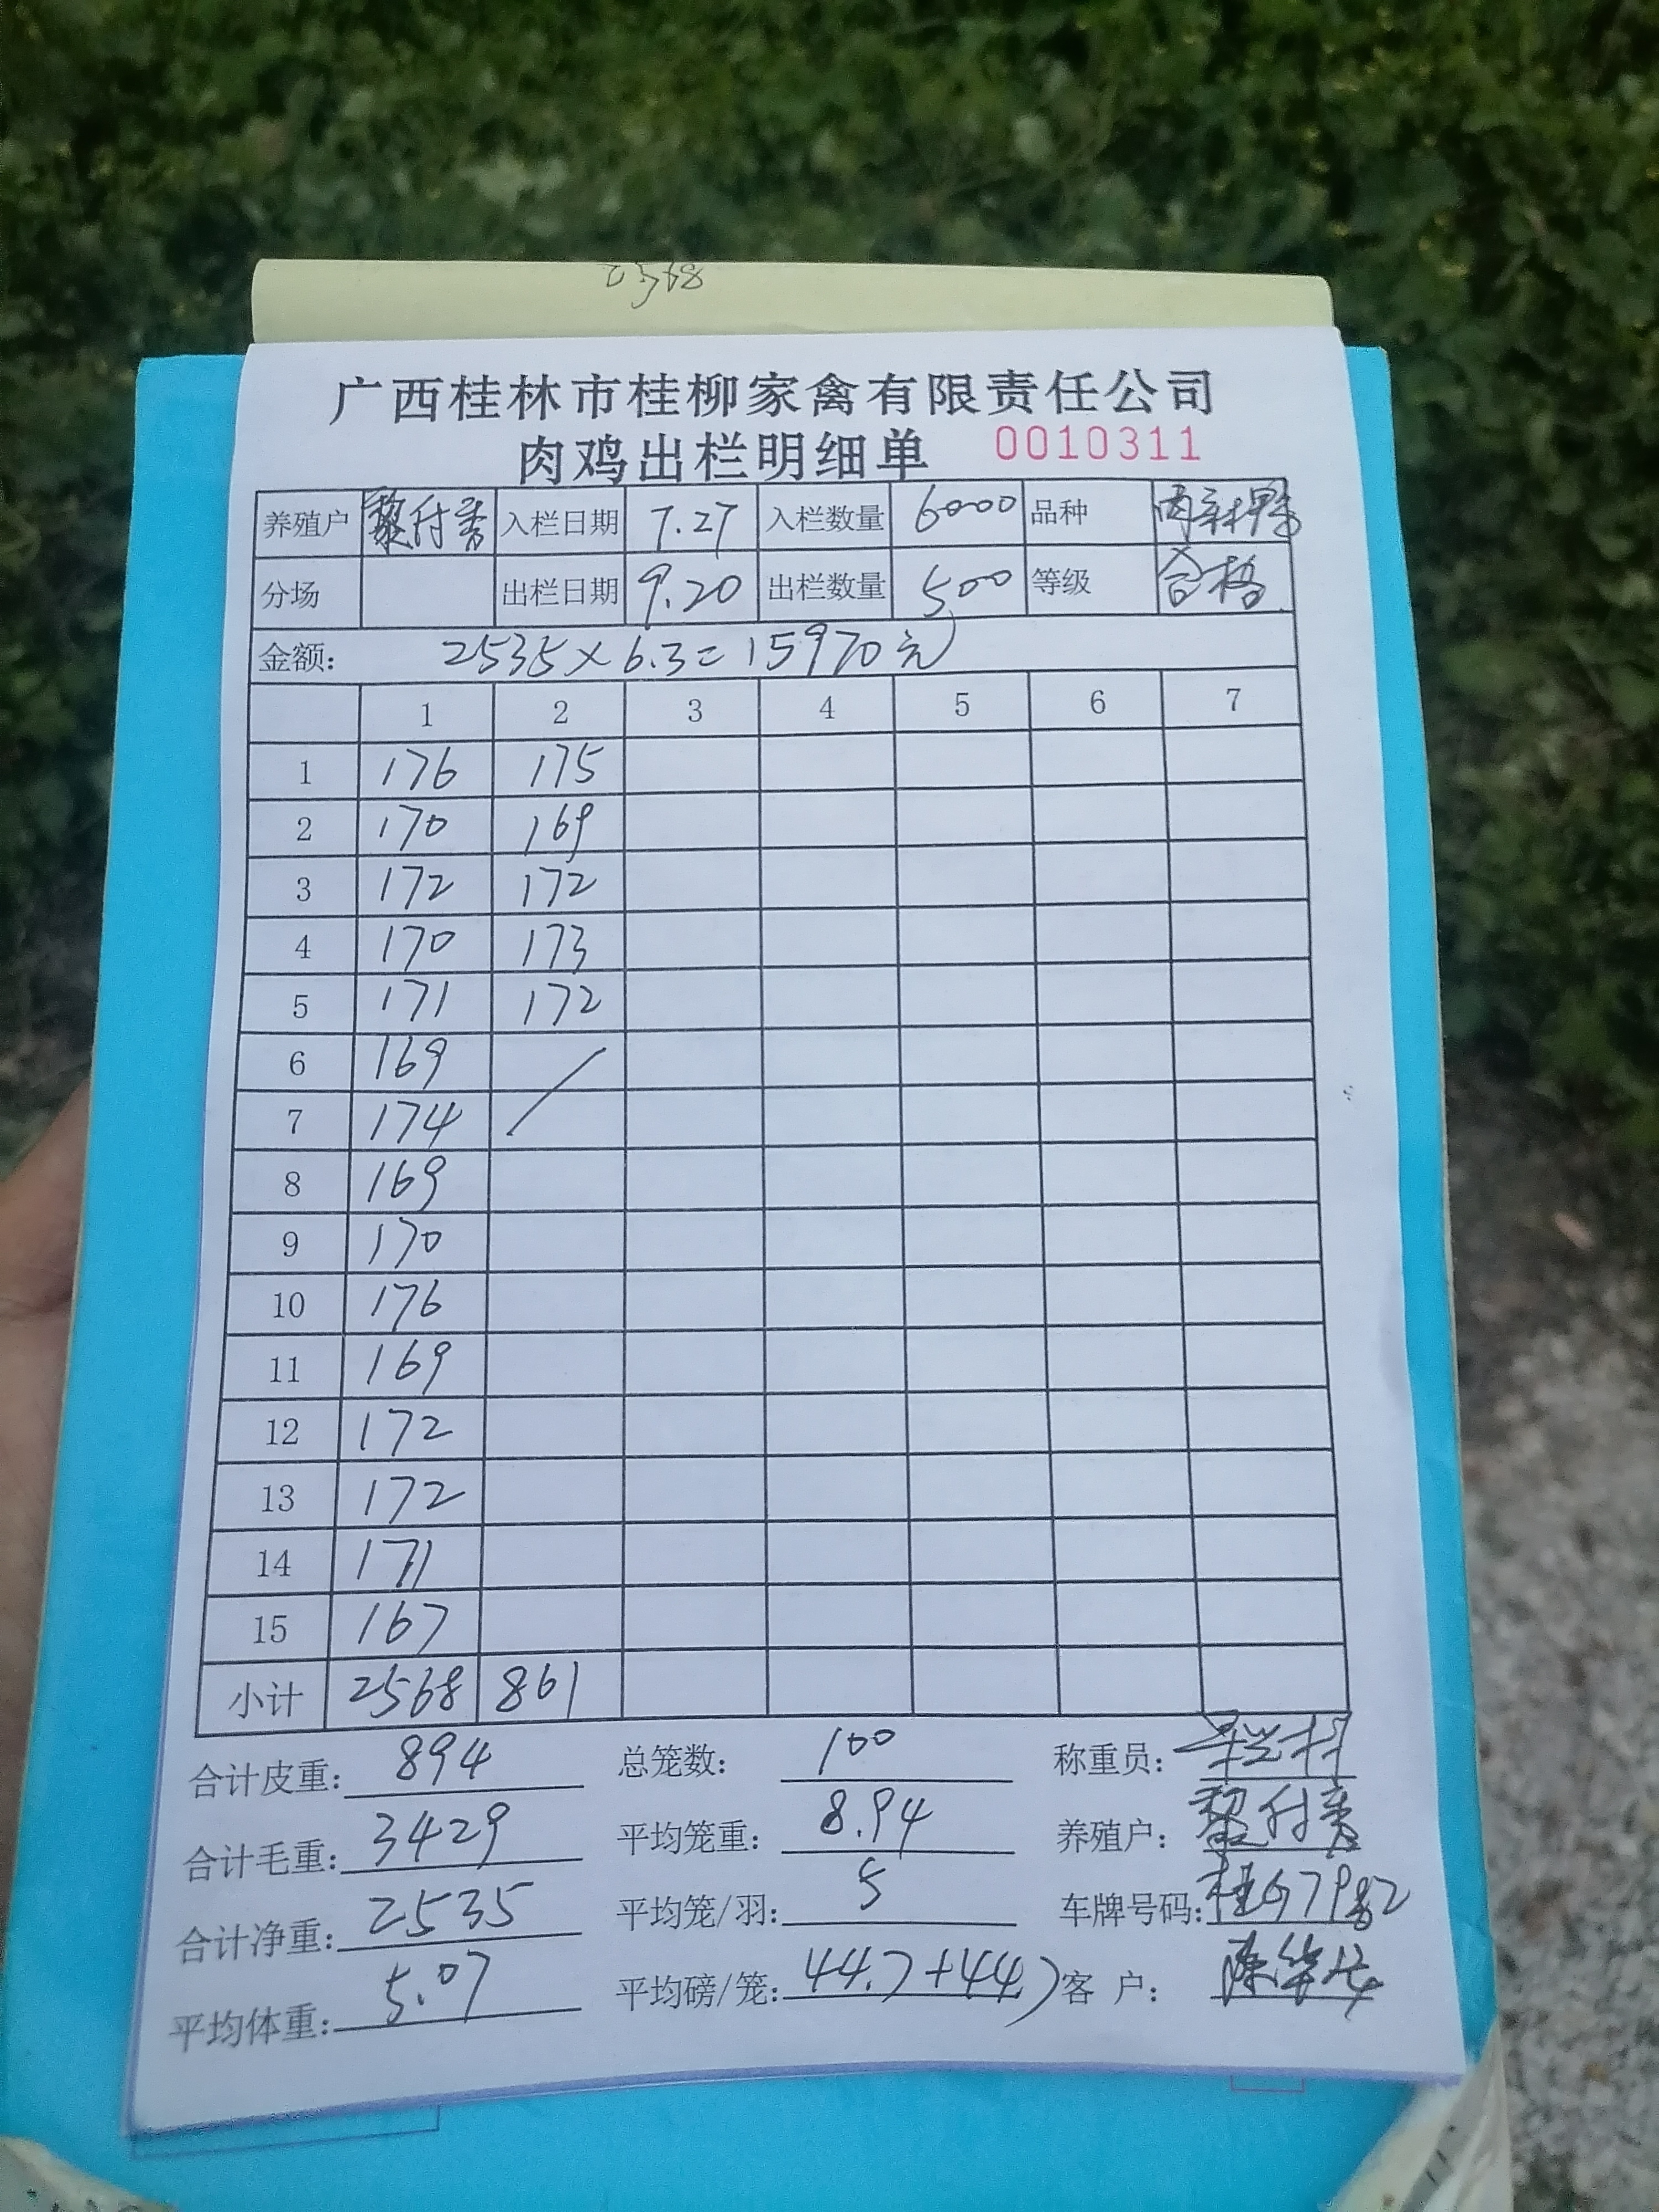 2568
广西桂林市桂柳家禽有限责任公司
肉鸡出栏明细单 0010311
养殖户 黎付秀 入栏日期 7.27 入栏数量 6000 品种
分场 出栏日期 9.20 出栏数量 500 等级 合格
金额: 2535×6.3=15970元
1 2 3 4 5 6 7
1 176 175
2 170 169
3 172 172
4 170 173
5 171 172
6 169
7 174
8 169
9 170
10 176
11 169
12 172
13 172
14 171
15 167
小计 2568 861
合计皮重: 894 总笼数: 100 称重员:
合计毛重: 3429 平均笼重: 8.94 养殖户: 黎付秀
合计净重: 2535 平均笼/羽: 5 车牌号码:
平均体重: 5.07 平均磅/笼: 44.7+44.7 客 户: